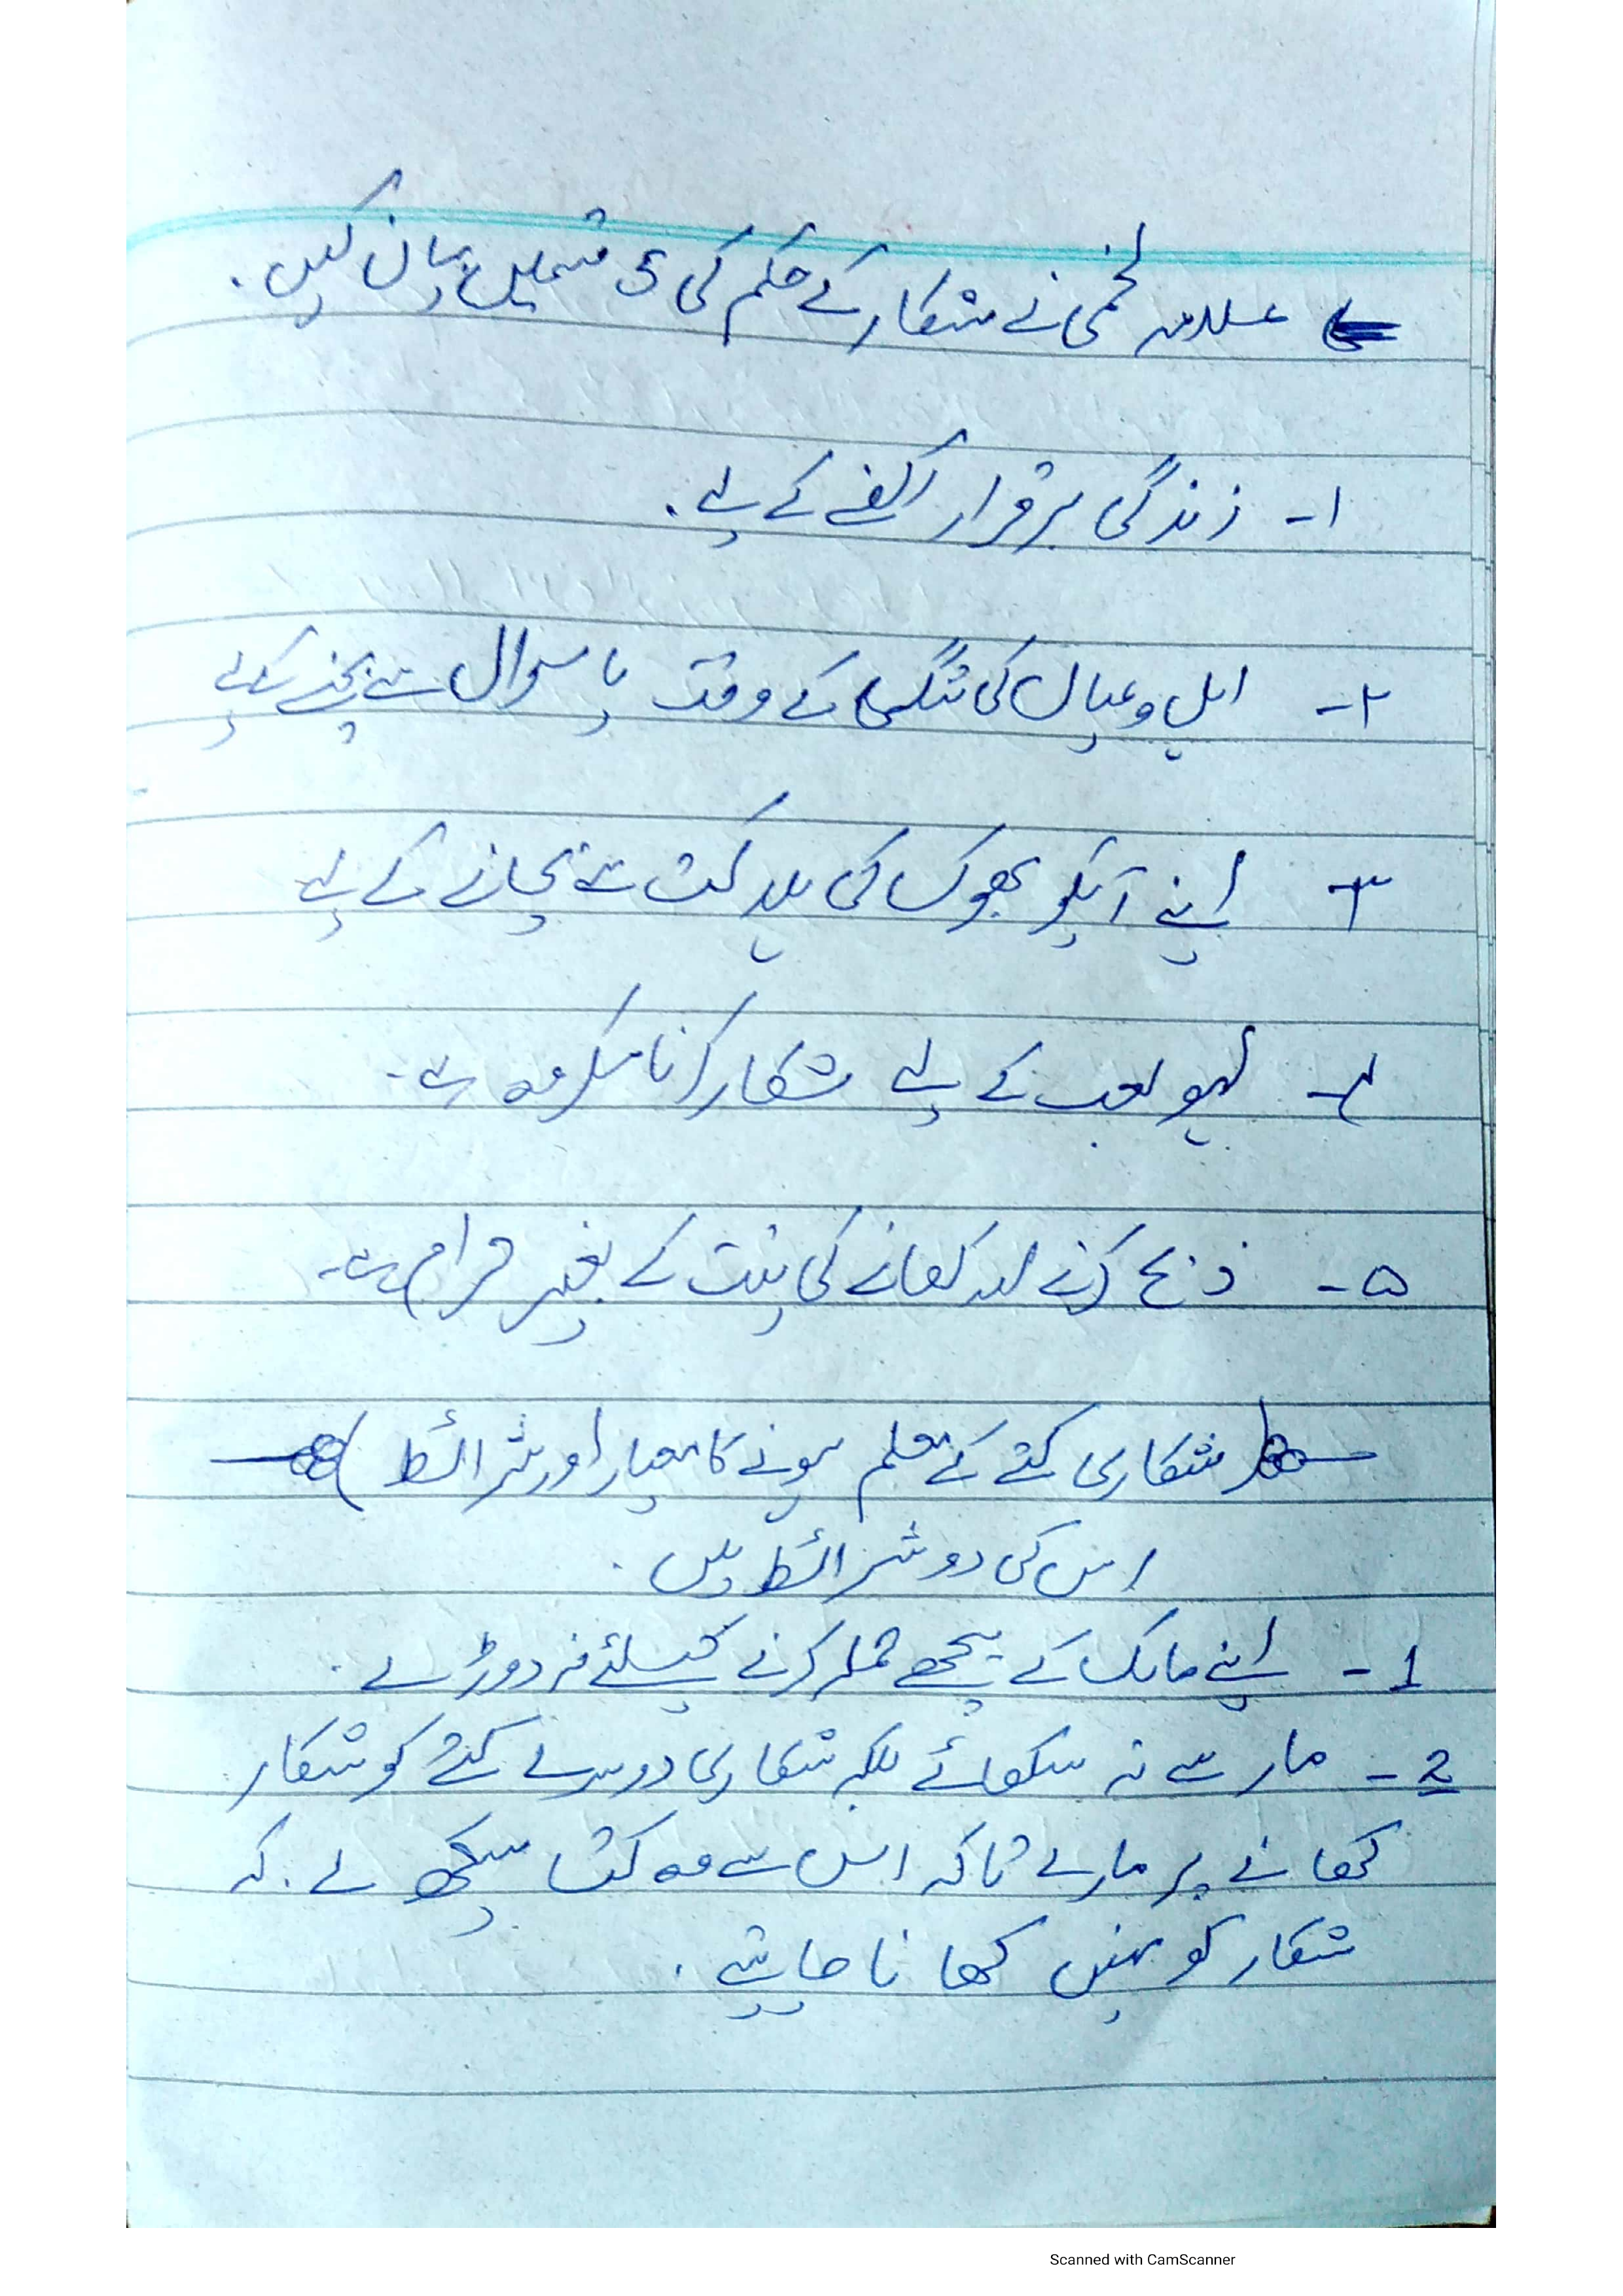 علامہ لخمی نے شکار کے حکم کی 5 قسمیں بیان کیں۔
۱- زندگی برقرار رکھنے کے لیے۔
۲- اہل و عیال کی تنگی کے وقت یا سوال سے بچنے کیلئے
۳- اپنے آپکو بھوک کی ہلاکت سے بچانے کے لیے
۴- لہو لعب کے لیے شکار کرنا مکروہ ہے۔
۵- ذبح کرنے اور کھانے کی نیت کے بغیر حرام ہے۔
شکاری کتے کے معلم ہونے کا معیار اور شرائط
اس کی دو شرائط ہیں۔
1- اپنے مالک کے پیچھے حملہ کرنے کیلئے نہ دوڑے۔
2- مار سے نہ سکھائے بلکہ شکاری دوسرے کتے کو شکار
کھانے پر مارے تاکہ اس سے وہ کتا سیکھ لے۔ کہ
شکار کو نہیں کھانا چاہیئے۔
Scanned with CamScanner